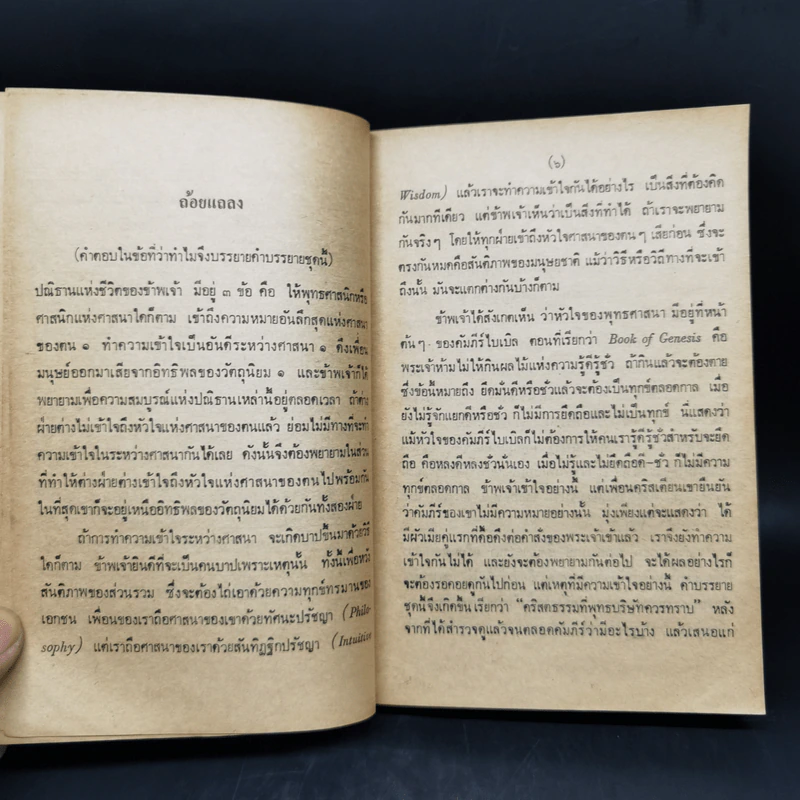 ถ้อยแถลง
(คำตอบในข้อที่ว่าทำไมจึงบรรยายคำบรรยายชุดนี้)
ปณิธานแห่งชีวิตของข้าพเจ้า มีอยู่ ๓ ข้อ คือ ให้พุทธศาสนิกหรือ
ศาสนิกแห่งศาสนาใดก็ตาม เข้าถึงความหมายอันลึกสุดแห่งศาสนา
ของตน ๑ ทำความเข้าใจเป็นอันดีระหว่างศาสนา ๑ ดึงเพื่อน
มนุษย์ออกมาเสียจากอิทธิพลของวัตถุนิยม ๑ และข้าพเจ้าก็ได้
พยายามเพื่อความสมบูรณ์แห่งปณิธานเหล่านี้อยู่ตลอดเวลา ถ้าต่าง
ฝ่ายต่างไม่เข้าใจถึงหัวใจแห่งศาสนาของตนแล้ว ย่อมไม่มีทางที่จะทำ
ความเข้าใจในระหว่างศาสนากันได้เลย ดังนั้นจึงต้องพยายามในส่วน
ที่ทำให้ต่างฝ่ายต่างเข้าใจถึงหัวใจแห่งศาสนาของตนไปพร้อมกัน
ในที่สุดเขาก็จะอยู่เหนืออิทธิพลของวัตถุนิยมได้ด้วยกันทั้งสองฝ่าย
ถ้าการทำความเข้าใจระหว่างศาสนา จะเกิดบาปขึ้นมาด้วยวิธี
ใดก็ตาม ข้าพเจ้ายินดีที่จะเป็นคนบาปเพราะเหตุนั้น ทั้งนี้เพื่อหวัง
สันติภาพของส่วนรวม ซึ่งจะต้องไถ่เอาด้วยความทุกข์ทรมานของ
เอกชน เพื่อนของเราถือศาสนาของเขาด้วยทัศนะปรัชญา (Philo-
sophy) แต่เราถือศาสนาของเราด้วยสันทิฏฐิกปรัชญา (Intuitive
(๖)
Wisdom) แล้วเราจะทำความเข้าใจกันได้อย่างไร เป็นสิ่งที่ต้องคิด
กันมากทีเดียว แต่ข้าพเจ้าเห็นว่าเป็นสิ่งที่ทำได้ ถ้าเราจะพยายาม
กันจริงๆ โดยให้ทุกฝ่ายเข้าถึงหัวใจศาสนาของตนๆ เสียก่อน ซึ่งจะ
ตรงกันหมดคือสันติภาพของมนุษยชาติ แม้ว่าวิธีหรือวิถีทางที่จะเข้า
ถึงนั้น มันจะแตกต่างกันบ้างก็ตาม
ข้าพเจ้าได้สังเกตเห็น ว่าหัวใจของพุทธศาสนา มีอยู่ที่หน้า
ต้นๆ ของคัมภีร์ไบเบิล ตอนที่เรียกว่า Book of Genesis คือ
พระเจ้าห้ามไม่ให้กินผลไม้แห่งความรู้ดีรู้ชั่ว ถ้ากินแล้วจะต้องตาย
ซึ่งข้อนี้หมายถึง ยึดมั่นดีหรือชั่วแล้วจะต้องเป็นทุกข์ตลอดกาล เมื่อ
ยังไม่รู้จักแยกดีหรือชั่ว ก็ไม่มีการยึดถือและไม่เป็นทุกข์ นี่แสดงว่า
แม้หัวใจของคัมภีร์ไบเบิลก็ไม่ต้องการให้คนเรารู้ดีรู้ชั่วสำหรับจะยึด
ถือ คือหลงดีหลงชั่วนั่นเอง เมื่อไม่รู้และไม่ยึดถือดี-ชั่ว ก็ไม่มีความ
ทุกข์ตลอดกาล ข้าพเจ้าเข้าใจอย่างนี้ แต่เพื่อนคริสเตียนเขายืนยัน
ว่าคัมภีร์ของเขาไม่มีความหมายอย่างนั้น มุ่งเพียงแต่จะแสดงว่า ได้
มีผัวเมียคู่แรกที่ดื้อดึงต่อคำสั่งของพระเจ้าเข้าแล้ว เราจึงยังทำความ
เข้าใจกันไม่ได้ และยังจะต้องพยายามกันต่อไป จะได้ผลอย่างไรก็
จะต้องรอคอยดูกันไปก่อน แต่เหตุที่มีความเข้าใจอย่างนี้ คำบรรยาย
ชุดนี้จึงเกิดขึ้น เรียกว่า “คริสตธรรมที่พุทธบริษัทควรทราบ” หลัง
จากที่ได้สำรวจดูแล้วจนตลอดคัมภีร์ว่ามีอะไรบ้าง แล้วเสนอแก่